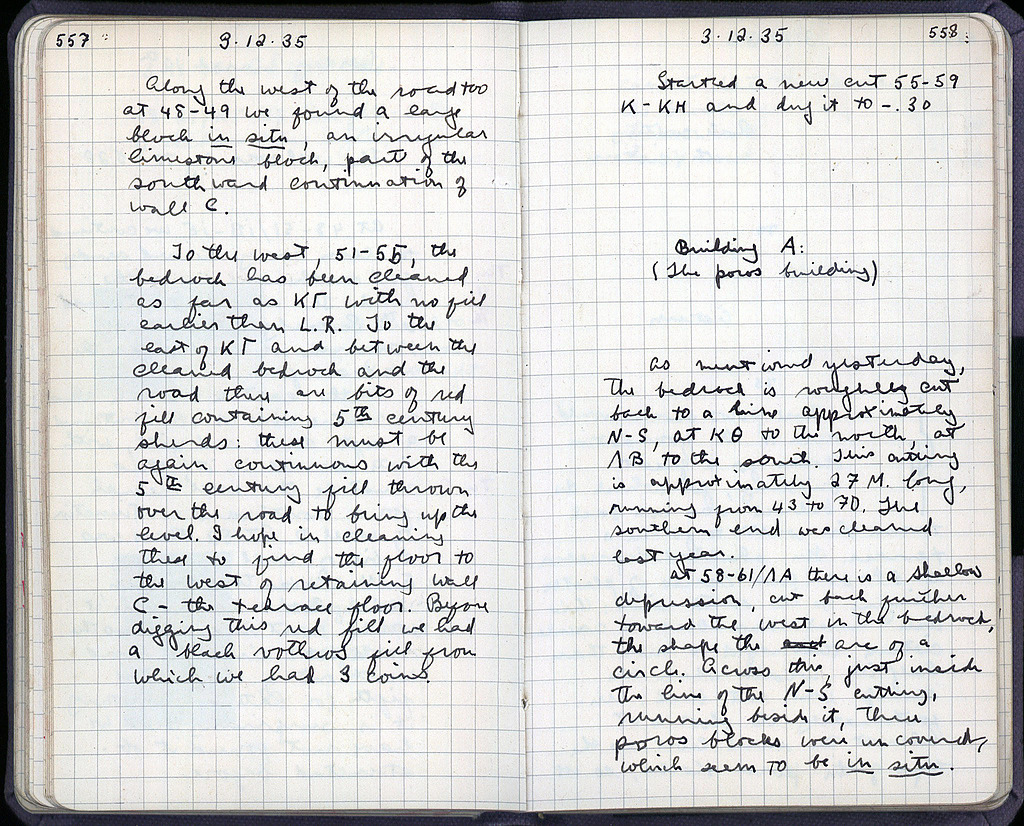 557
3·12·35
Along the west of the road too
at 48-49 we found a large
block in situ, an irregular
limestone block, part of the
southward continuation of
wall C.
To the west, 51-55, the
bedrock has been cleaned
as far as ΚΓ with no fill
earlier than L.R. To the
east of ΚΓ and between the
cleaned bedrock and the
road there are bits of red
fill containing 5th century
sherds: these must be
again continuous with the
5th century fill thrown
over the road to bring up the
level. I hope in cleaning
these to find the floor to
the west of retaining wall
C - the terrace floor. Before
digging this red fill we had
a black bothros fill from
which we had 3 coins.
3·12·35
558
Started a new cut 55-59
Κ-ΚΗ and dug it to -.30
Building A:
(The poros building)
As mentioned yesterday,
the bedrock is roughly cut
back to a line approximately
N-S, at ΚΘ to the north, at
ΛΒ to the south. This cutting
is approximately 27 M. long,
running from 43 to 70. The
southern end was cleaned
last year.
At 58-61/ΛΑ there is a shallow
depression, cut back further
toward the west in the bedrock,
the shape the arc of a
circle. Across this, just inside
the line of the N-S cutting,
running beside it, three
poros blocks were uncovered,
which seem to be in situ.